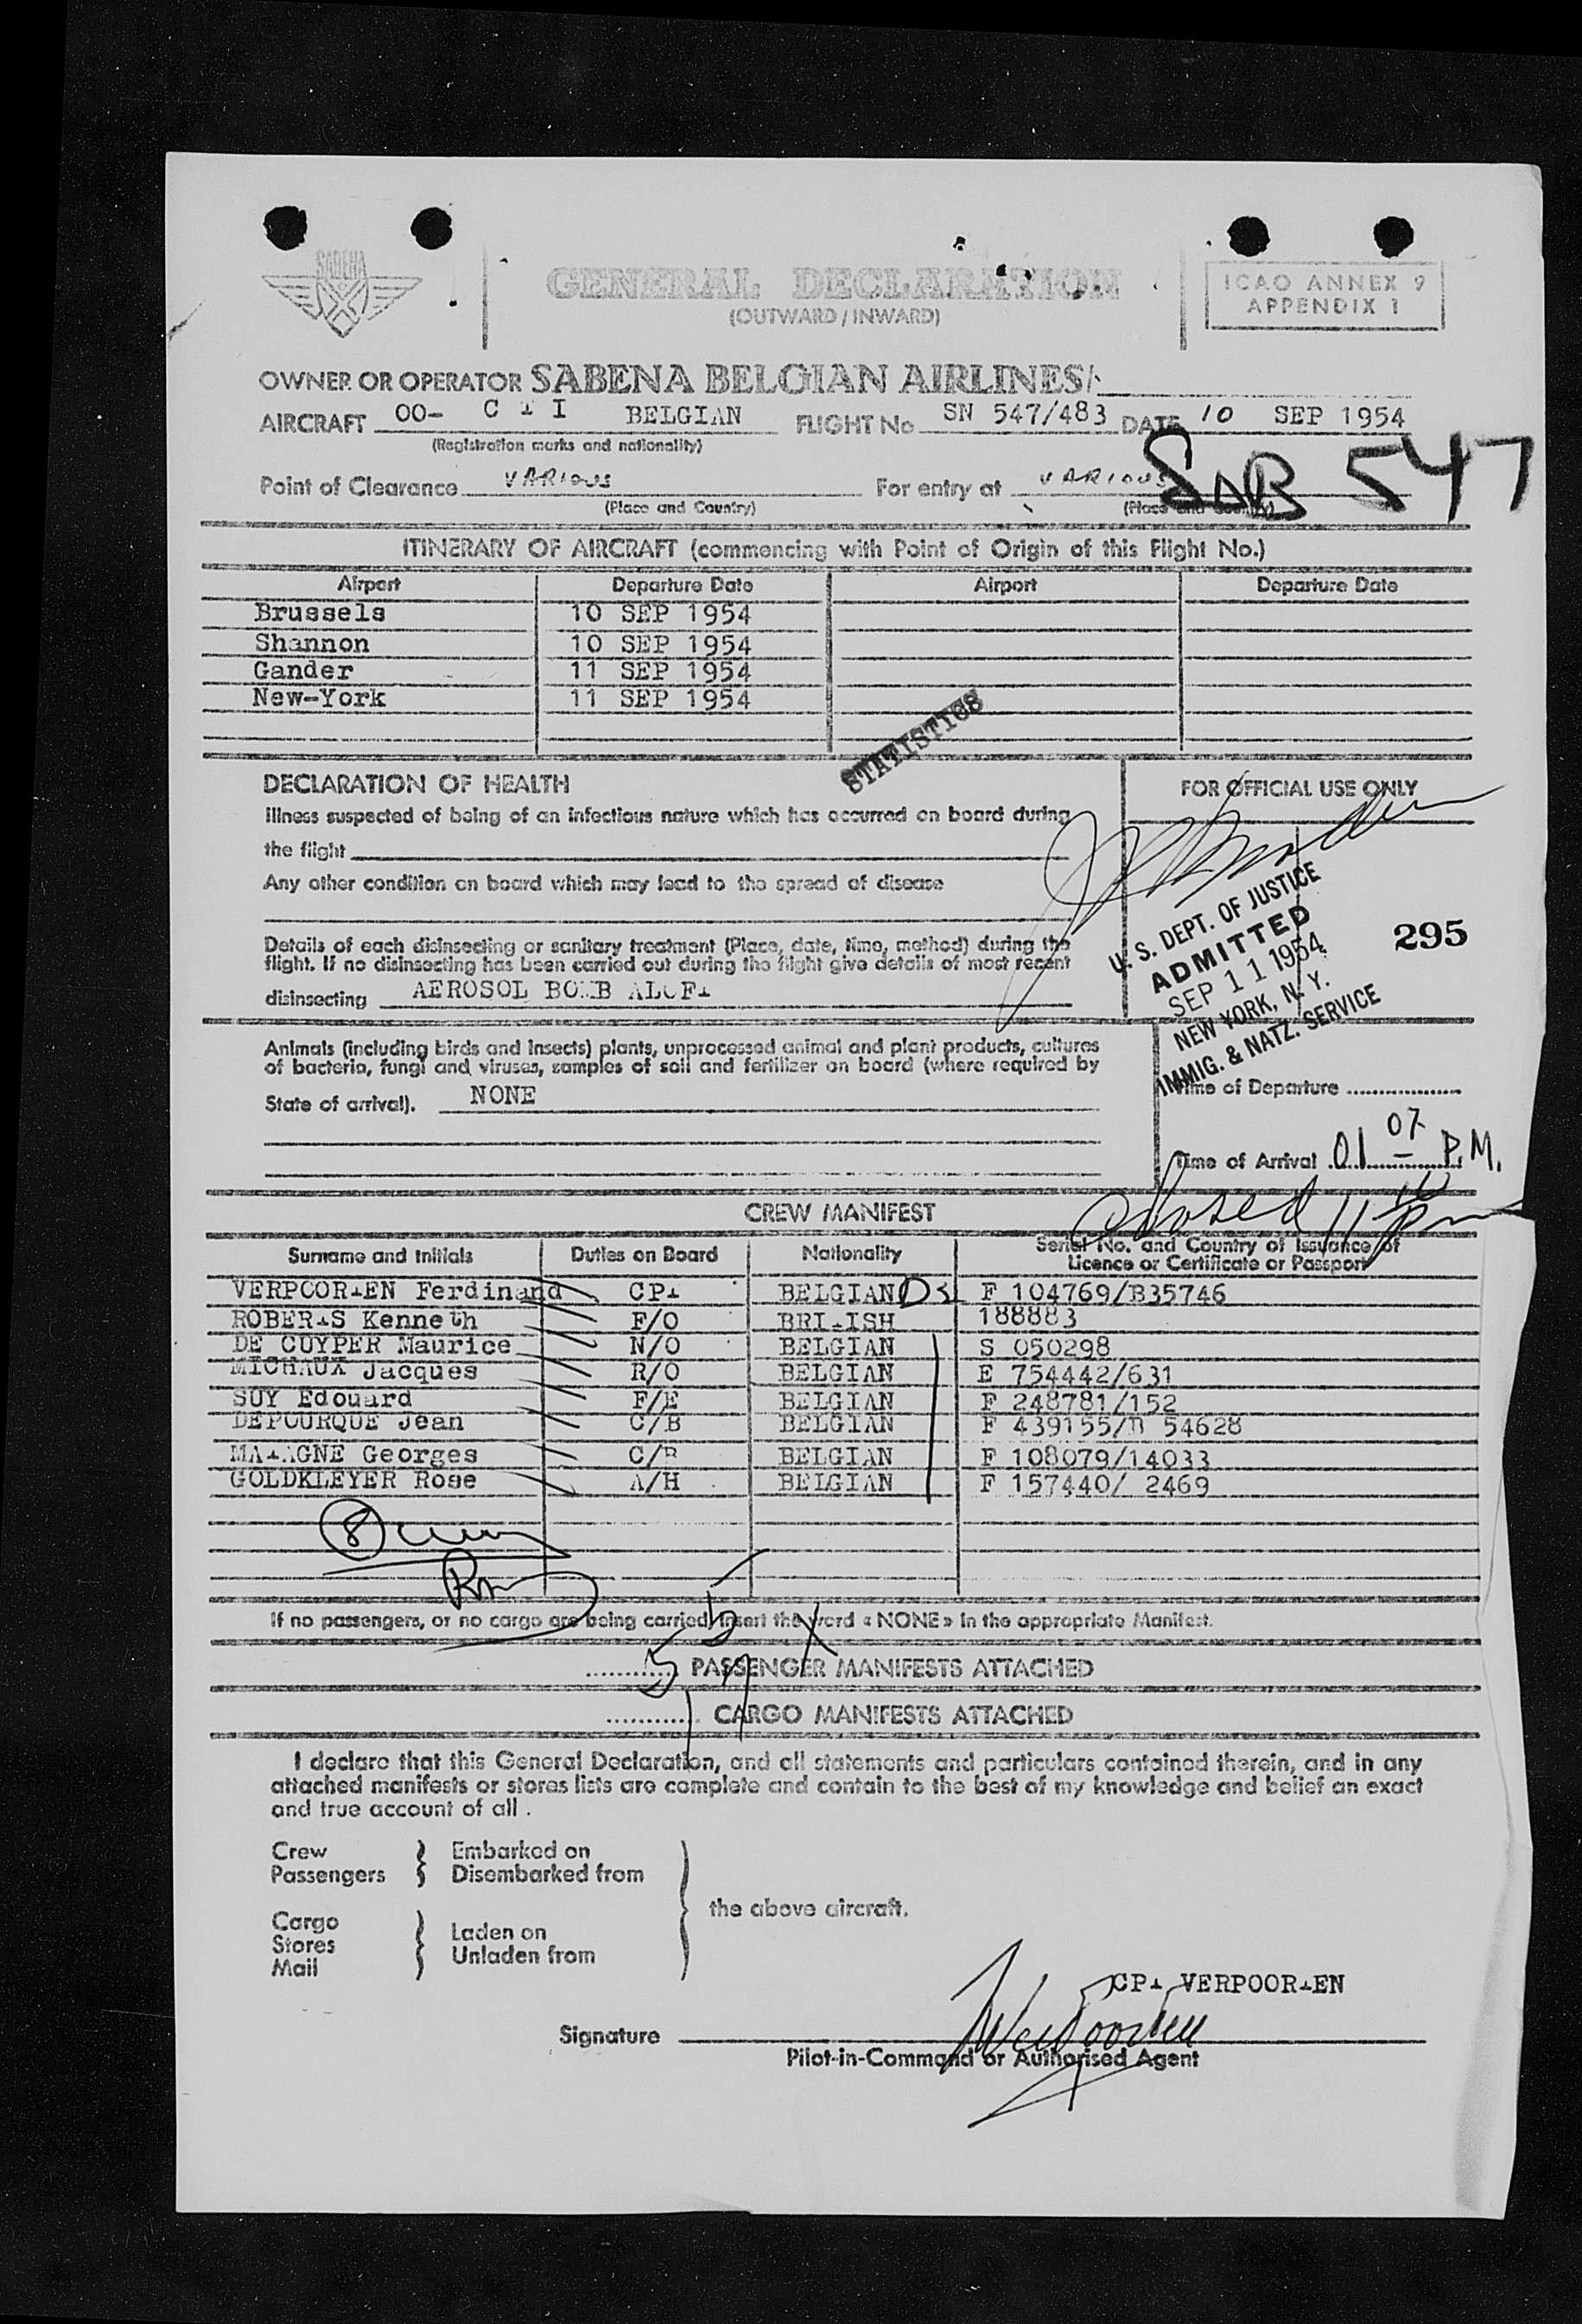 SABENA
GENERAL DECLARATION
(OUTWARD / INWARD)
ICAO ANNEX 9
APPENDIX 1
OWNER OR OPERATOR SABENA BELGIAN AIRLINES
AIRCRAFT OO- C T I BELGIAN FLIGHT No SN 547/483 DATE 10 SEP 1954
(Registration marks and nationality)
SAB 547
Point of Clearance VARIOUS For entry at VARIOUS
(Place and Country) (Place and Country)
ITINERARY OF AIRCRAFT (commencing with Point of Origin of this Flight No.)
Airport Departure Date Airport Departure Date
Brussels 10 SEP 1954
Shannon 10 SEP 1954
Gander 11 SEP 1954
New-York 11 SEP 1954
STATISTICS
DECLARATION OF HEALTH
Illness suspected of being of an infectious nature which has occurred on board during
the flight
Any other condition on board which may lead to the spread of disease
Details of each disinsecting or sanitary treatment (Place, date, time, method) during the
flight. If no disinsecting has been carried out during the flight give details of most recent
disinsecting AEROSOL BOMB ALOFT
FOR OFFICIAL USE ONLY
U. S. DEPT. OF JUSTICE
ADMITTED
SEP 11 1954
NEW YORK, N. Y.
IMMIG. & NATZ. SERVICE
295
Animals (including birds and insects) plants, unprocessed animal and plant products, cultures
of bacteria, fungi and viruses, samples of soil and fertilizer on board (where required by
State of arrival). NONE
Time of Departure
Time of Arrival 01 07 P.M.
closed 11 10 pm
CREW MANIFEST
Surname and Initials Duties on Board Nationality Serial No. and Country of Issuance of
Licence or Certificate or Passport
VERPOORTEN Ferdinand CPT BELGIAN F 104769/B35746
ROBERTS Kenneth F/O BRITISH 188883
DE CUYPER Maurice N/O BELGIAN S 050298
MICHAUX Jacques R/O BELGIAN E 754442/631
SUY Edouard F/E BELGIAN F 248781/152
DEPOURQUE Jean C/B BELGIAN F 439155/B 54628
MATAGNE Georges C/B BELGIAN F 108079/14033
GOLDKLEYER Rose A/H BELGIAN F 157440/ 2469
8
If no passengers, or no cargo are being carried, insert the word « NONE » in the appropriate Manifest.
5 PASSENGER MANIFESTS ATTACHED
CARGO MANIFESTS ATTACHED
I declare that this General Declaration, and all statements and particulars contained therein, and in any
attached manifests or stores lists are complete and contain to the best of my knowledge and belief an exact
and true account of all .
Crew Embarked on
Passengers Disembarked from
the above aircraft.
Cargo
Stores Laden on
Mail Unladen from
CPT VERPOORTEN
Signature
Pilot-in-Command or Authorised Agent